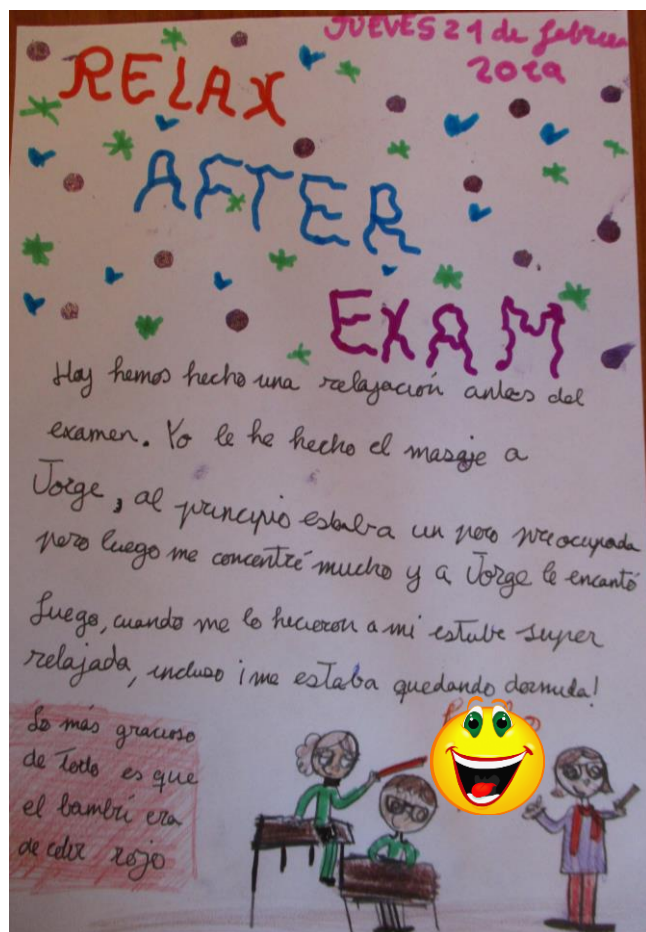 JUEVES 21 de febrero
2019
RELAX
AFTER
EXAM
Hoy hemos hecho una relajación antes del
examen. Yo le he hecho el masaje a
Jorge, al principio estaba un poco preocupada
pero luego me concentré mucho y a Jorge le encantó
Luego, cuando me lo hicieron a mi estube super
relajada, incluso ¡me estaba quedando dormida!
Lo más gracioso
de todo es que
el bambú era
de color rojo